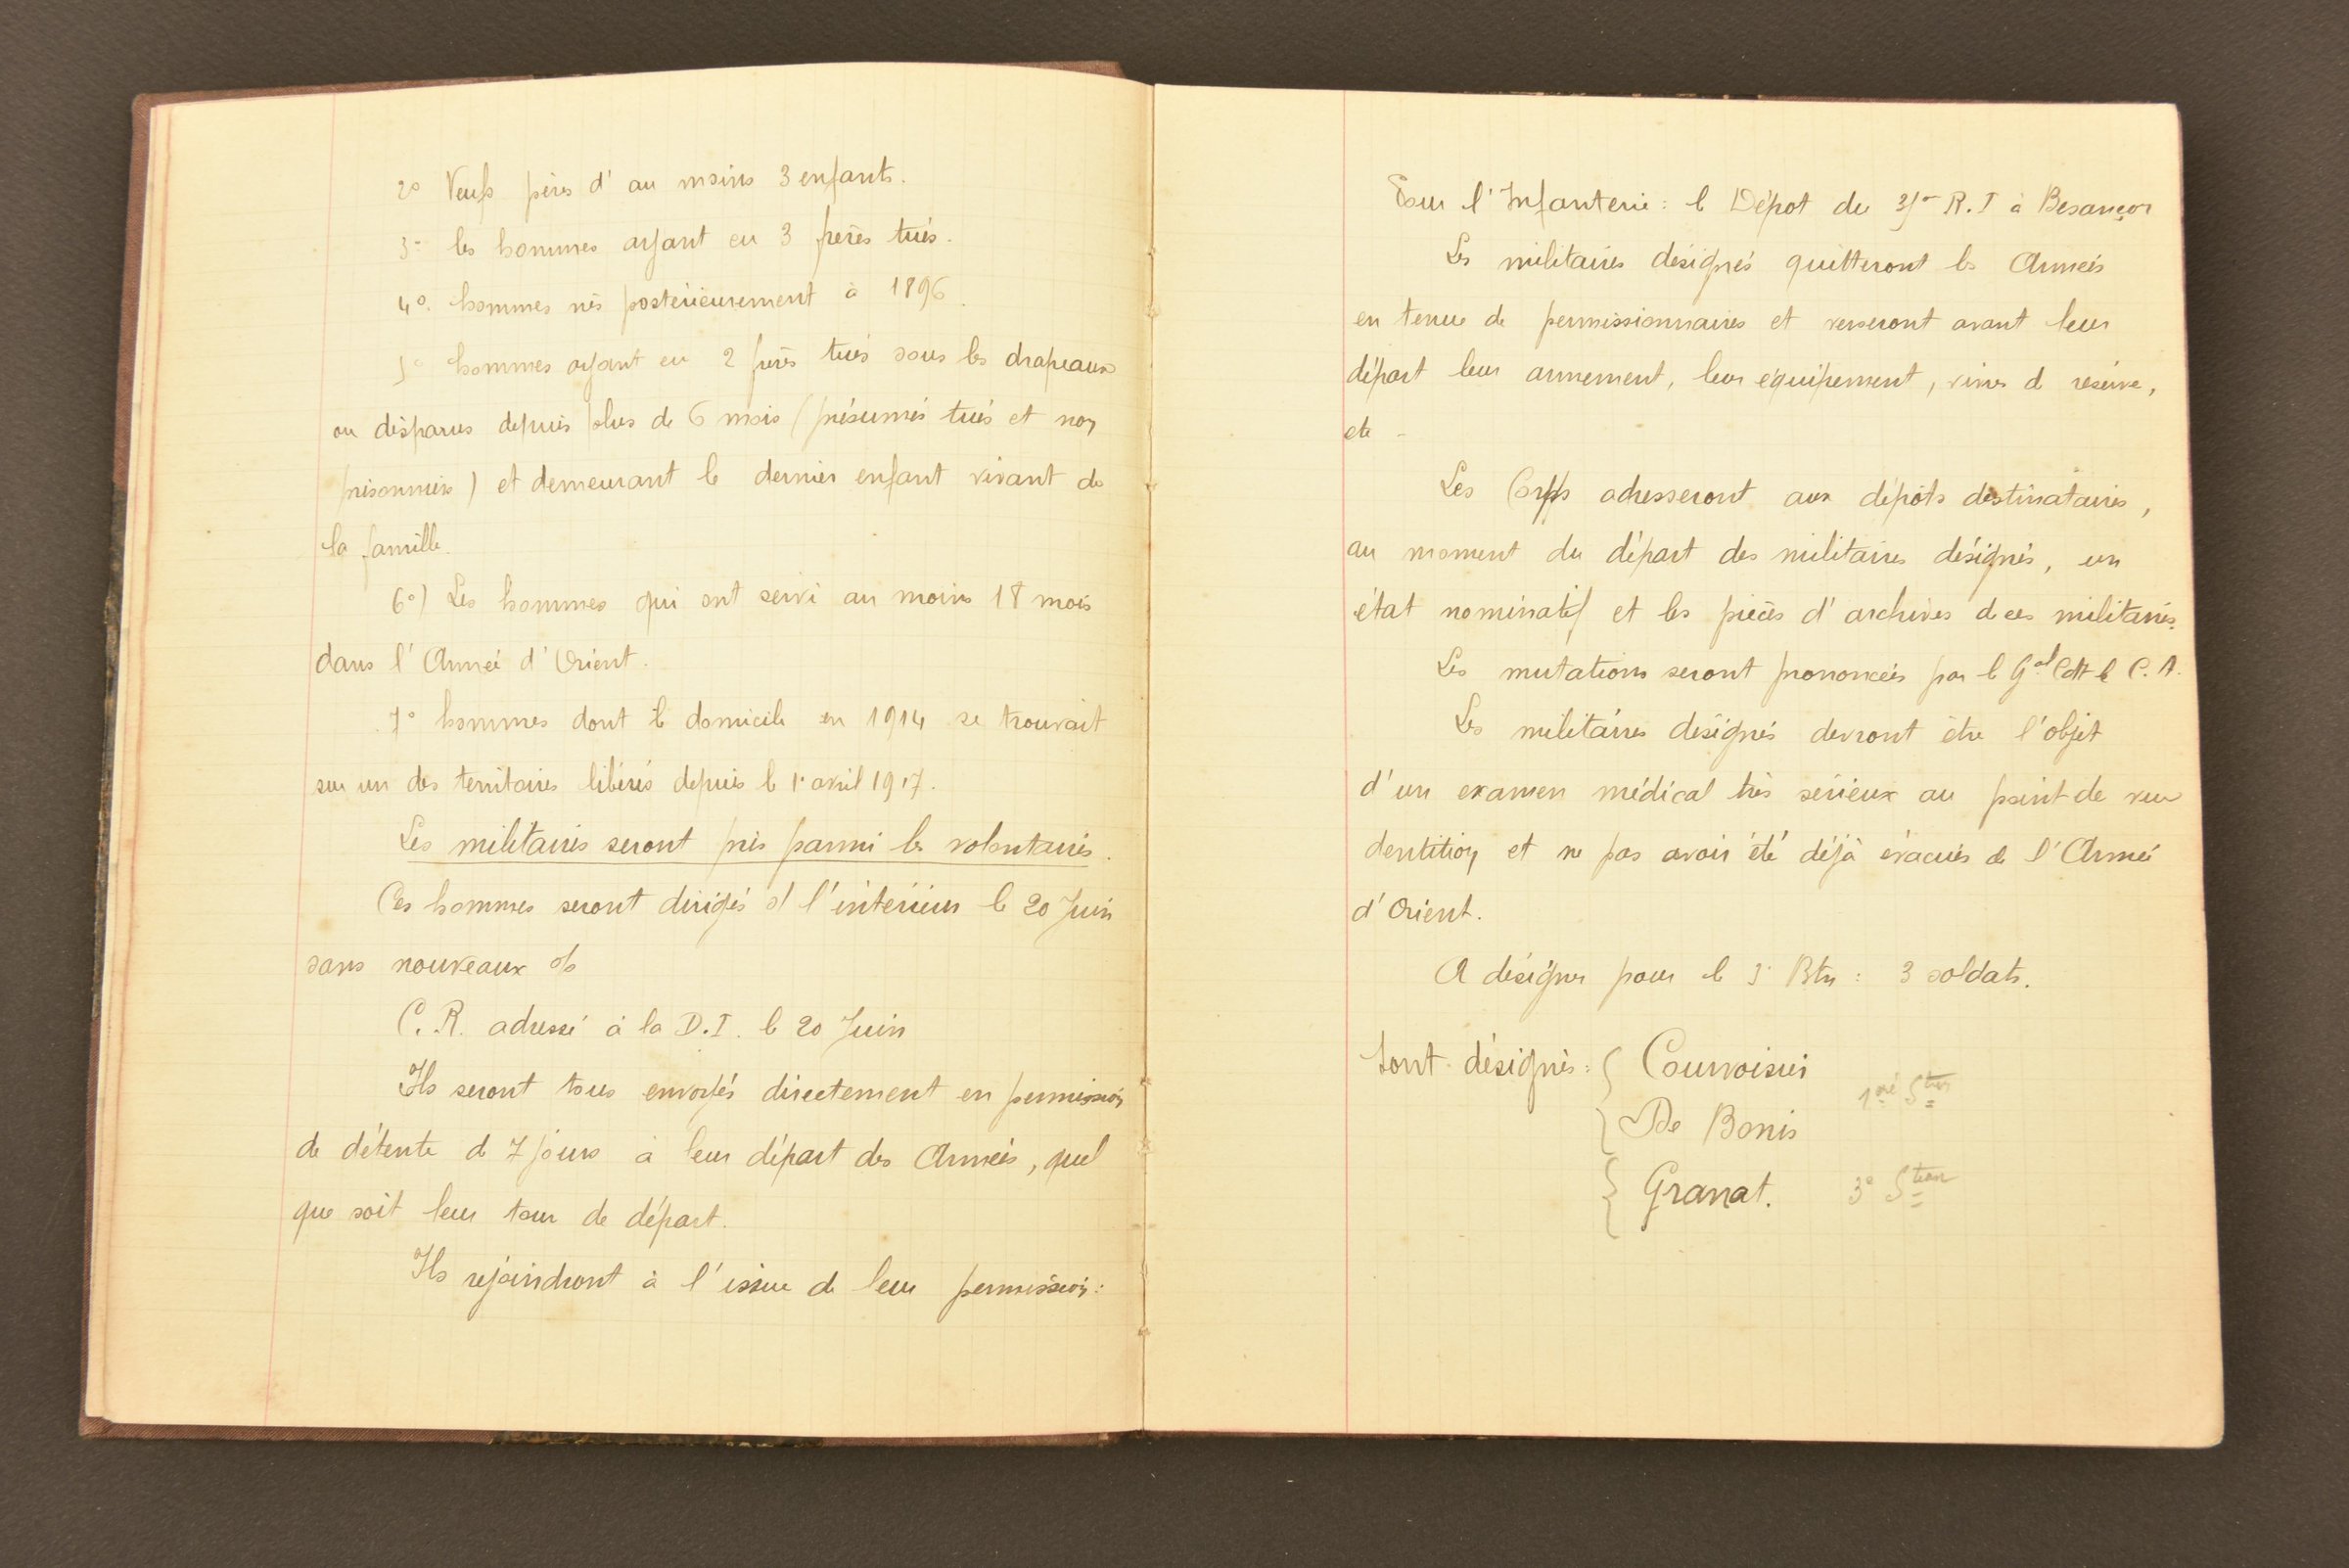 2° Veufs pères d'au moins 3 enfants.
3° les hommes ayant eu 3 frères tués.
4° hommes nés postérieurement à 1896.
5° hommes ayant eu 2 frères tués sous les drapeaux
ou disparus depuis plus de 6 mois (présumés tués et non
prisonniers) et demeurant le dernier enfant vivant de
la famille.
6°) Les hommes qui ont servi au moins 18 mois
dans l'Armée d'Orient.
7° hommes dont le domicile en 1914 se trouvait
sur un des territoires libérés depuis le 1er avril 1917.
Les militaires seront pris parmi les volontaires.
Ces hommes seront dirigés s/ l'intérieur le 20 Juin
sans nouveaux o/s
C.R. adressé à la D.I. le 20 Juin
Ils seront tous envoyés directement en permission
de détente de 7 jours à leur départ des Armées, quel
que soit leur tour de départ.
Ils rejoindront à l'issue de leur permission:
Pour l'Infanterie: le Dépot du R.I à Besançon
Les militaires désignés quitteront les Armées
en tenue de permissionnaires et verseront avant leur
départ leur armement, leur équipement, vivres de réserve,
etc -
Les Corps adresseront aux dépôts destinataires,
au moment du départ des militaires désignés, un
état nominatif et les pièces d'archives de ces militaires.
Les mutations seront prononcées par le Gal Cdt le C.A.
Les militaires désignés devront être l'objet
d'un examen médical très sérieux au point de vue
dentition et ne pas avoir été déjà évacués de l'Armée
d'Orient.
A désigner pour le 3e Btn: 3 soldats.
Sont désignés: { Courvoisier
De Bonis
1ère Stion
{ Granat. 3e Stion